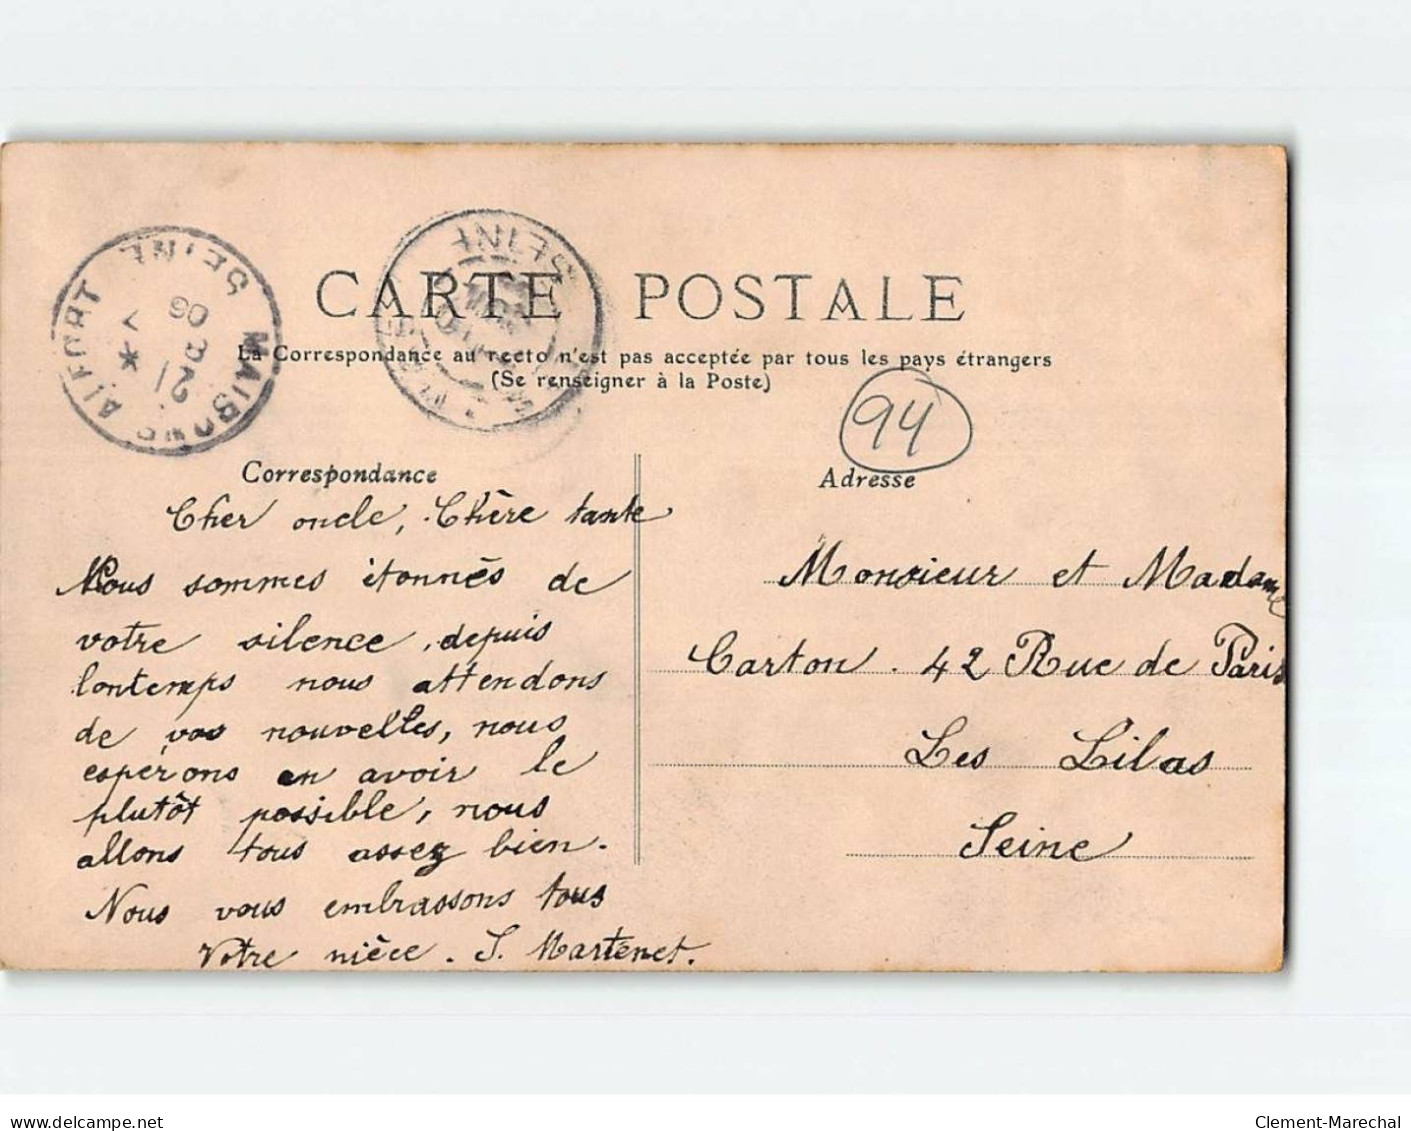 CARTE POSTALE
La Correspondance au recto n'est pas acceptée par tous les pays étrangers
(Se renseigner à la Poste)
MAISONS ALFORT SEINE
SEINE
94
Correspondance
Cher oncle, Chère tante
Nous sommes étonnés de
votre silence, depuis
lontemps nous attendons
de vos nouvelles, nous
espérons en avoir le
plutôt possible, nous
allons tous assez bien.
Nous vous embrassons tous
Votre nièce. S. Martenet.
Adresse
Monsieur et Madame
Carton. 42 Rue de Paris
Les Lilas
Seine
www.delcampe.net
Clement-Marechal